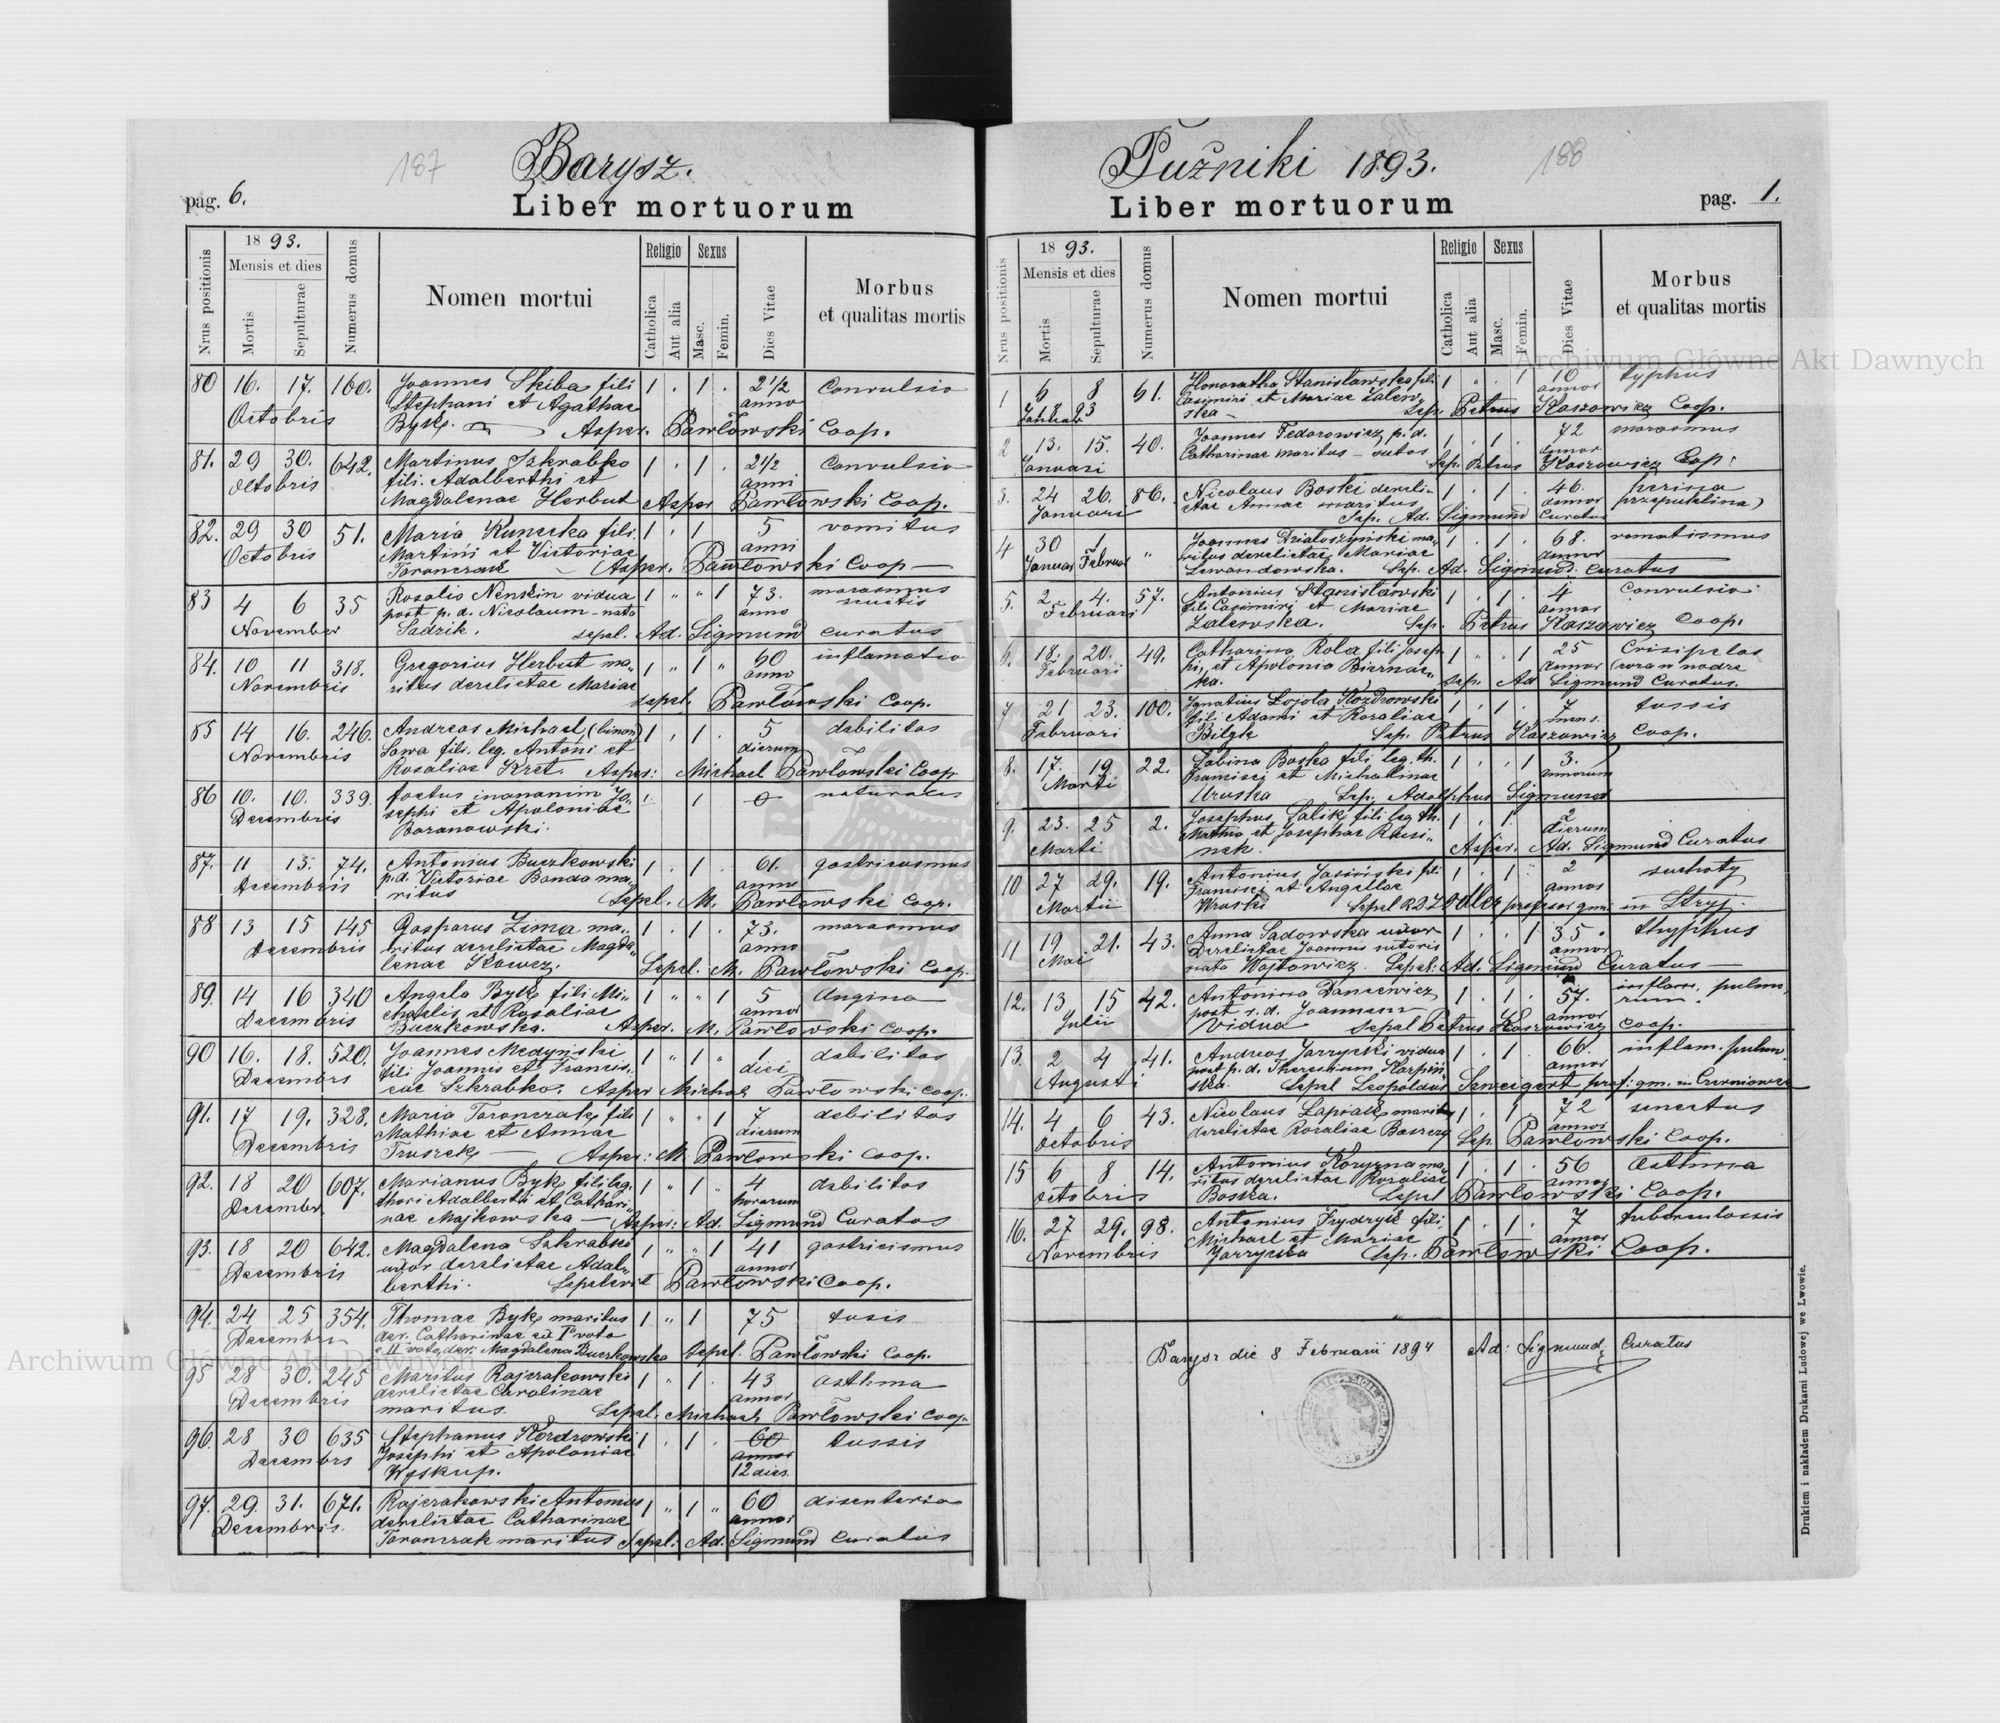 187
Barysz.
pag. 6.
Liber mortuorum
Nrus positionis
18 93.
Mensis et dies
Mortis
Sepulturae
Numerus domus
Nomen mortui
Religio
Catholica
Aut alia
Sexus
Masc.
Femin.
Dies Vitae
Morbus
et qualitas mortis
80 16. 17. 160. Joannes Skiba fili 1 . 1 . 2 1/2 Convulsio
Octobris Stephani et Agathae anno
Byk. Asper. Pawłowski Coop.
81. 29 30. 642. Martinus Szkrabko 1 . 1 . 2 1/2 Convulsio
Octobris fili. Adalberthi et anni
Magdalenae Herbut Asper Pawłowski Coop.
82. 29 30 51. Maria Kunecka fili. 1 . 1 5 vomitus
Octobris Martini et Victoriae anni
Taronczak Asper. Pawłowski Coop
83 4 6 35 Rosalia Nenkin vidua 1 " " 1 73. marasmus
November post p. d. Nicolaum nata anno
Sadzik. sepel. Ad. Sigmund curatus
84. 10 11 318. Gregorius Herbut ma- 1 " 1 " 60 inflamatio
Novembris ritus derelictae Mariae anno
sepel. Pawłowski Coop.
85 14 16. 246. Andreas Michael 1 . 1 . 5 debilitas
Novembris Sawa fili. leg. Antoni et dierum
Rosaliae Kret. Asper: Michael Pawłowski Coop
86 10. 10. 339. foetus inananim Jo- 1 0 naturales
Decembris sephi et Apoloniae
Baranowski.
87. 11 13. 74. Antonius Buczkowski 1 . 1 . 61. gastricismus
Decembris p. d. Victoriae Banda ma- anno
ritus Sepel. M. Pawłowski Coop.
88 13 15 145 Gasparus Zima ma- 1 . 1 . 73. marasmus
Decembris ritus derelictae Magda- anno
lenae Krawcz. Sepel. M. Pawłowski Coop.
89. 14 16 340 Angela Byk fili Mi- 1 " " 1 5 Angina
Decembris chaelis et Rosaliae annor
Buczkowska. Asper. M. Pawłowski Coop.
90 16. 18. 520. Joannes Medyński 1 " 1 " 1 debilitas
Decembrs fili Joannis et Francis- diei
cae Szkrabko. Asper Michael Pawłowski Coop.
91. 17 19. 328. Maria Taronczak fili 1 " " 1 7 debilitas
Decembris Mathiae et Annae dierum
Truszek Asper: M. Pawłowski Coop.
92. 18 20 607. Marianus Byk fili leg. 1 " 1 " 4 debilitas
December thori Adalberthi et Cathari- horarum
nae Majkowska Asper: Ad. Sigmund Curatos
93. 18 20 642. Magdalena Szkrabko 1 " " 1 41 gastricismus
Decembris uxor derelictae Adal- annor
berthi. Sepelevit Pawłowski Coop.
94. 24 25 354. Thomae Byk maritus 1 " 1 75 tusis
der. Catharinae ex I voto
e II voto, der: Magdalena Buczkowska sepel. Pawłowski Coop.
95 28 30. 245 Maritus Rajczakowski 1 " 1 . 43 asthma
Decembris derelictae Carolinae annor
maritus. Sepel. Michael Pawłowski Coop.
96. 28 30 635 Stephanus Kozdrowski 1 . 1 . 60 tussis
Decembrs Josephi et Apoloniae annor
Wyskup. 12 dies.
97. 29. 31. 671. Rajczakowski Antonius 1 " 1 " 60 disenteria
Decembris. derelictae Catharinae annor
Taronczak maritus Sepel: Ad. Sigmund Curatus
188
Pużniki 1893.
Liber mortuorum
pag. 1.
Nrus positionis
18 93.
Mensis et dies
Mortis
Sepulturae
Numerus domus
Nomen mortui
Religio
Catholica
Aut alia
Sexus
Masc.
Femin.
Dies Vitae
Morbus
et qualitas mortis
1 6 8 61. Honoratha Stanisławska fili 1 " . 1 10 typhus
Casimiri et Mariae Zalew- annor
ska Sep. Petrus Kaszowicz Coop.
2 13. 15. 40. Joannes Fedorowicz p. d. 1 . 1 . 72 marasmus
Januari Catharinae maritus - sutor annor
Sep. Petrus Kaszowicz Cop.
3. 24 26. 86. Nicolaus Boski dereli- 1 . 1 . 46.
Januari ctae Annae maritus annor przepuklina)
Sep. Ad. Sigmund Curatus
4 30 1 " Joannes Działoszyński ma- 1 . 1 . 68. romatismus
Januar Februar ritus derelictae Mariae annor
Lewandowska. Sep. Ad. Sigmund. Curatus
5. 2 4. 57. Antonius Stanisławski 1 . 1 . 4 Convulsio
Februari fili Casimiri et Mariae annor
Zalewska. Sep. Petrus Kaszowicz Coop.
6. 18. 20. 49. Catharina Rola fili Josep- 1 " . 1 25 Crisipelas
Februari hi, et Apolonia Biernac- annor
ka. Sep. Ad Sigmund Curatus.
7 21 23. 100. Ignatius Lojola Kozdrowski 1 . 1 . 7 tussis
Februari fili Adami et Rozaliae
Bilyk Sep. Petrus Kaszowicz Coop.
8. 17. 19 22. Sabina Boska fili leg. th. 1 . . 1 3.
Marti Francisci et Michalinae annorum
Uruska Sep. Adolphus Sigmund
9. 23. 25 2. Josephus Saliki fili leg. th. 1 . 1 . 2
Marti et Josephae dierum
Asper. Ad. Sigmund Curatus
10 27 29. 19. Antonius Jasiński fili 1 . 1 2 suchoty
Martii Francisci et Angellae annos
Wruski Sepel profesor gmn. in Stryj.
11 19 21. 43. Anna Sadowska uxor 1 . . 1 35 thyphus
Mai Derelictae Joannis sutoris annor
nata Wojtowicz. Sepel: Ad. Sigmund Curatus
12. 13 15 42. Antonina Dancewicz 1 . 1 . 57. inflam. pulmo-
Julii post s. d. Joannem annor rum.
vidua Sepel Petrus Kaszowicz Coop.
13. 2 4 41. Andreas Jarzycki vidua 1 . 1 . 66. inflam. pulmn.
Augusti post p. d. Theresiam Karpiń- annor
ska. Sepel Leopoldus Szweigert prof: gm. in Czerniowce
14. 4 6 43. Nicolaus Łapiak maritus 1 . 1 72 senectus
Octobris derelictae Rozaliae annor
Sep. Pawłowski Coop.
15 6 8 14. Antonius Koryzna ma- 1 . 1 . 56 Asthma
Octobris ritus derelictae Rozaliae annor
Boska. Sepel Pawłowski Coop.
16. 27 29. 98. Antonius Frydryk fili. 1 . 1 . 7 tuberculossis
Novembris Michael et Mariae annor
Jarzycka Sep. Pawłowski Coop.
Barysz die 8 Februarii 1894 Ad: Sigmund, Curatus
Drukiem i nakładem Drukarni Ludowej we Lwowie.
Archiwum Główne Akt Dawnych
Archiwum Główne Akt Dawnych